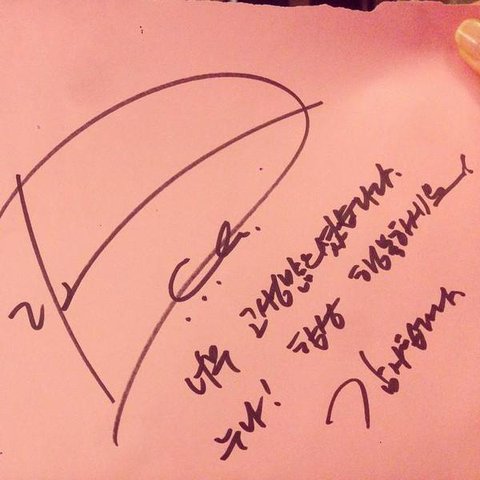 너무 고생많으셨습니다.
누나! 항상 행복하세요
감사합니다